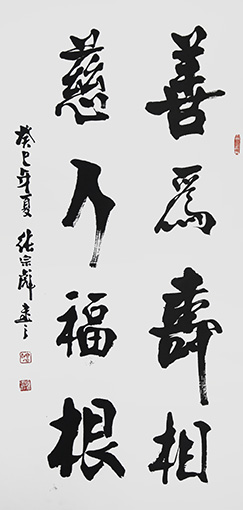 善為壽相
慈人福根
癸巳年夏 張宗彪書